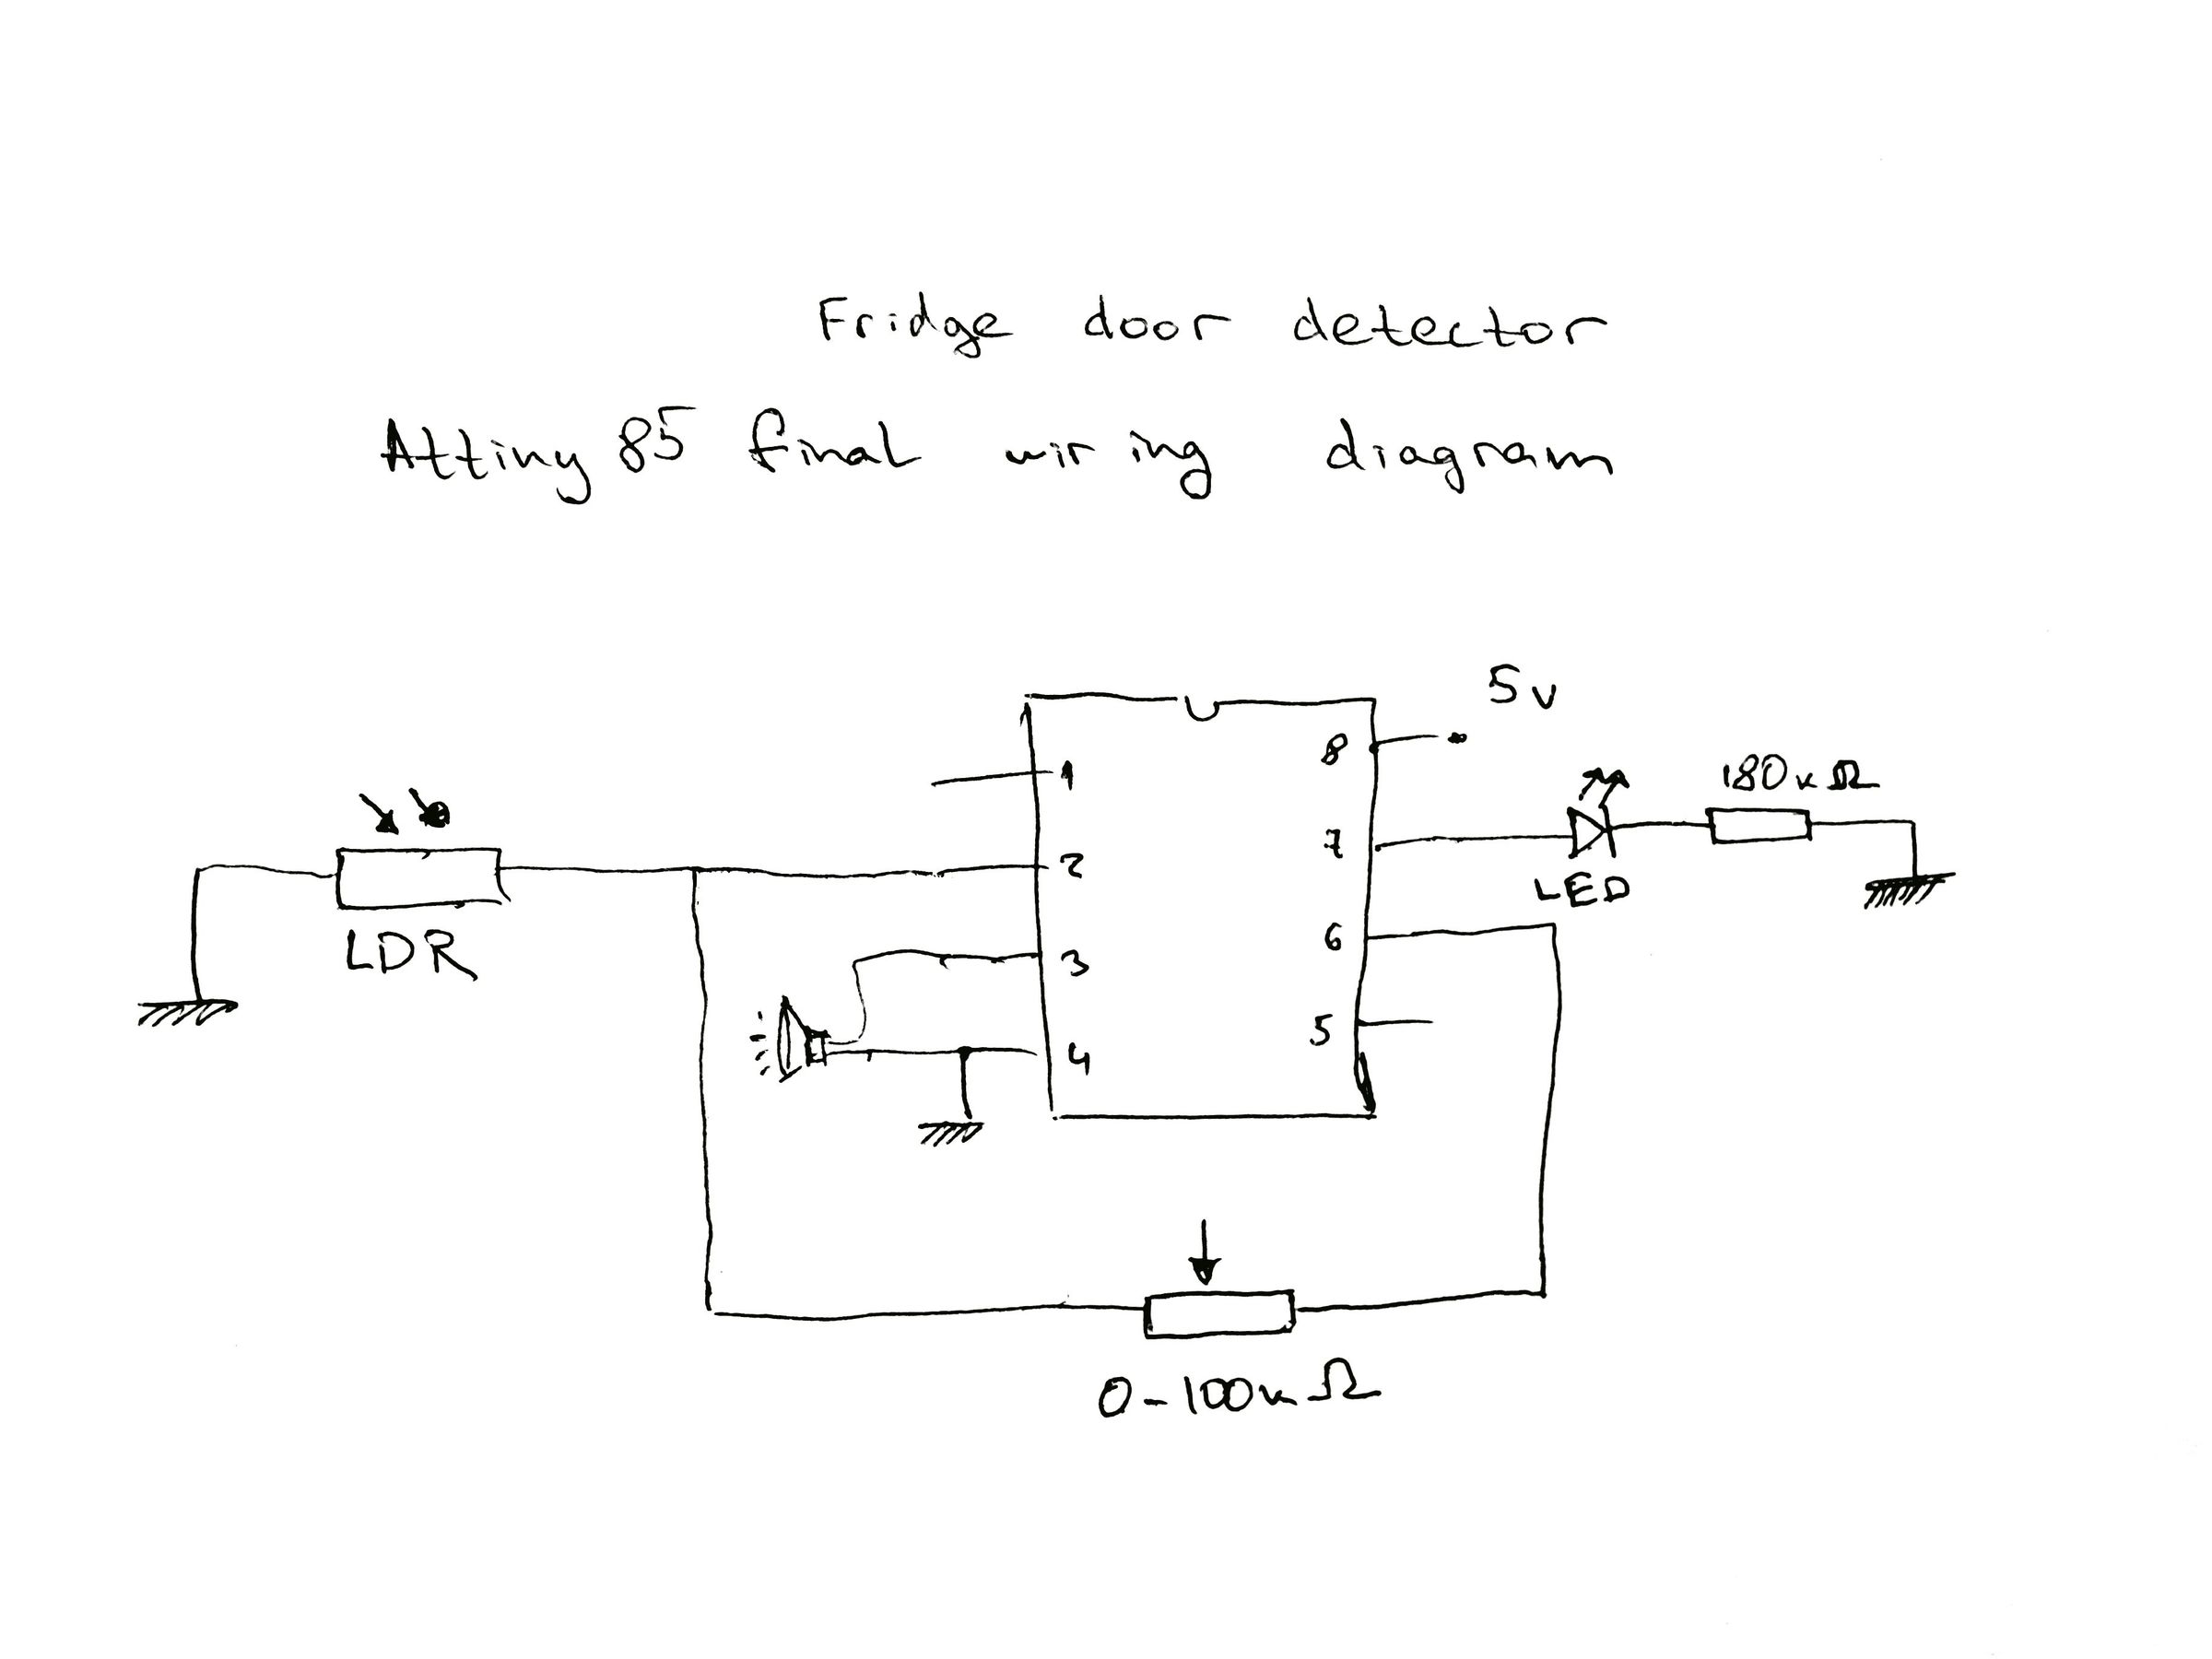 Fridge door detector
Attiny 85 final wiring diagram
5v
8
1
180kΩ
7
2
LED
6
LDR
3
5
4
0-100kΩ